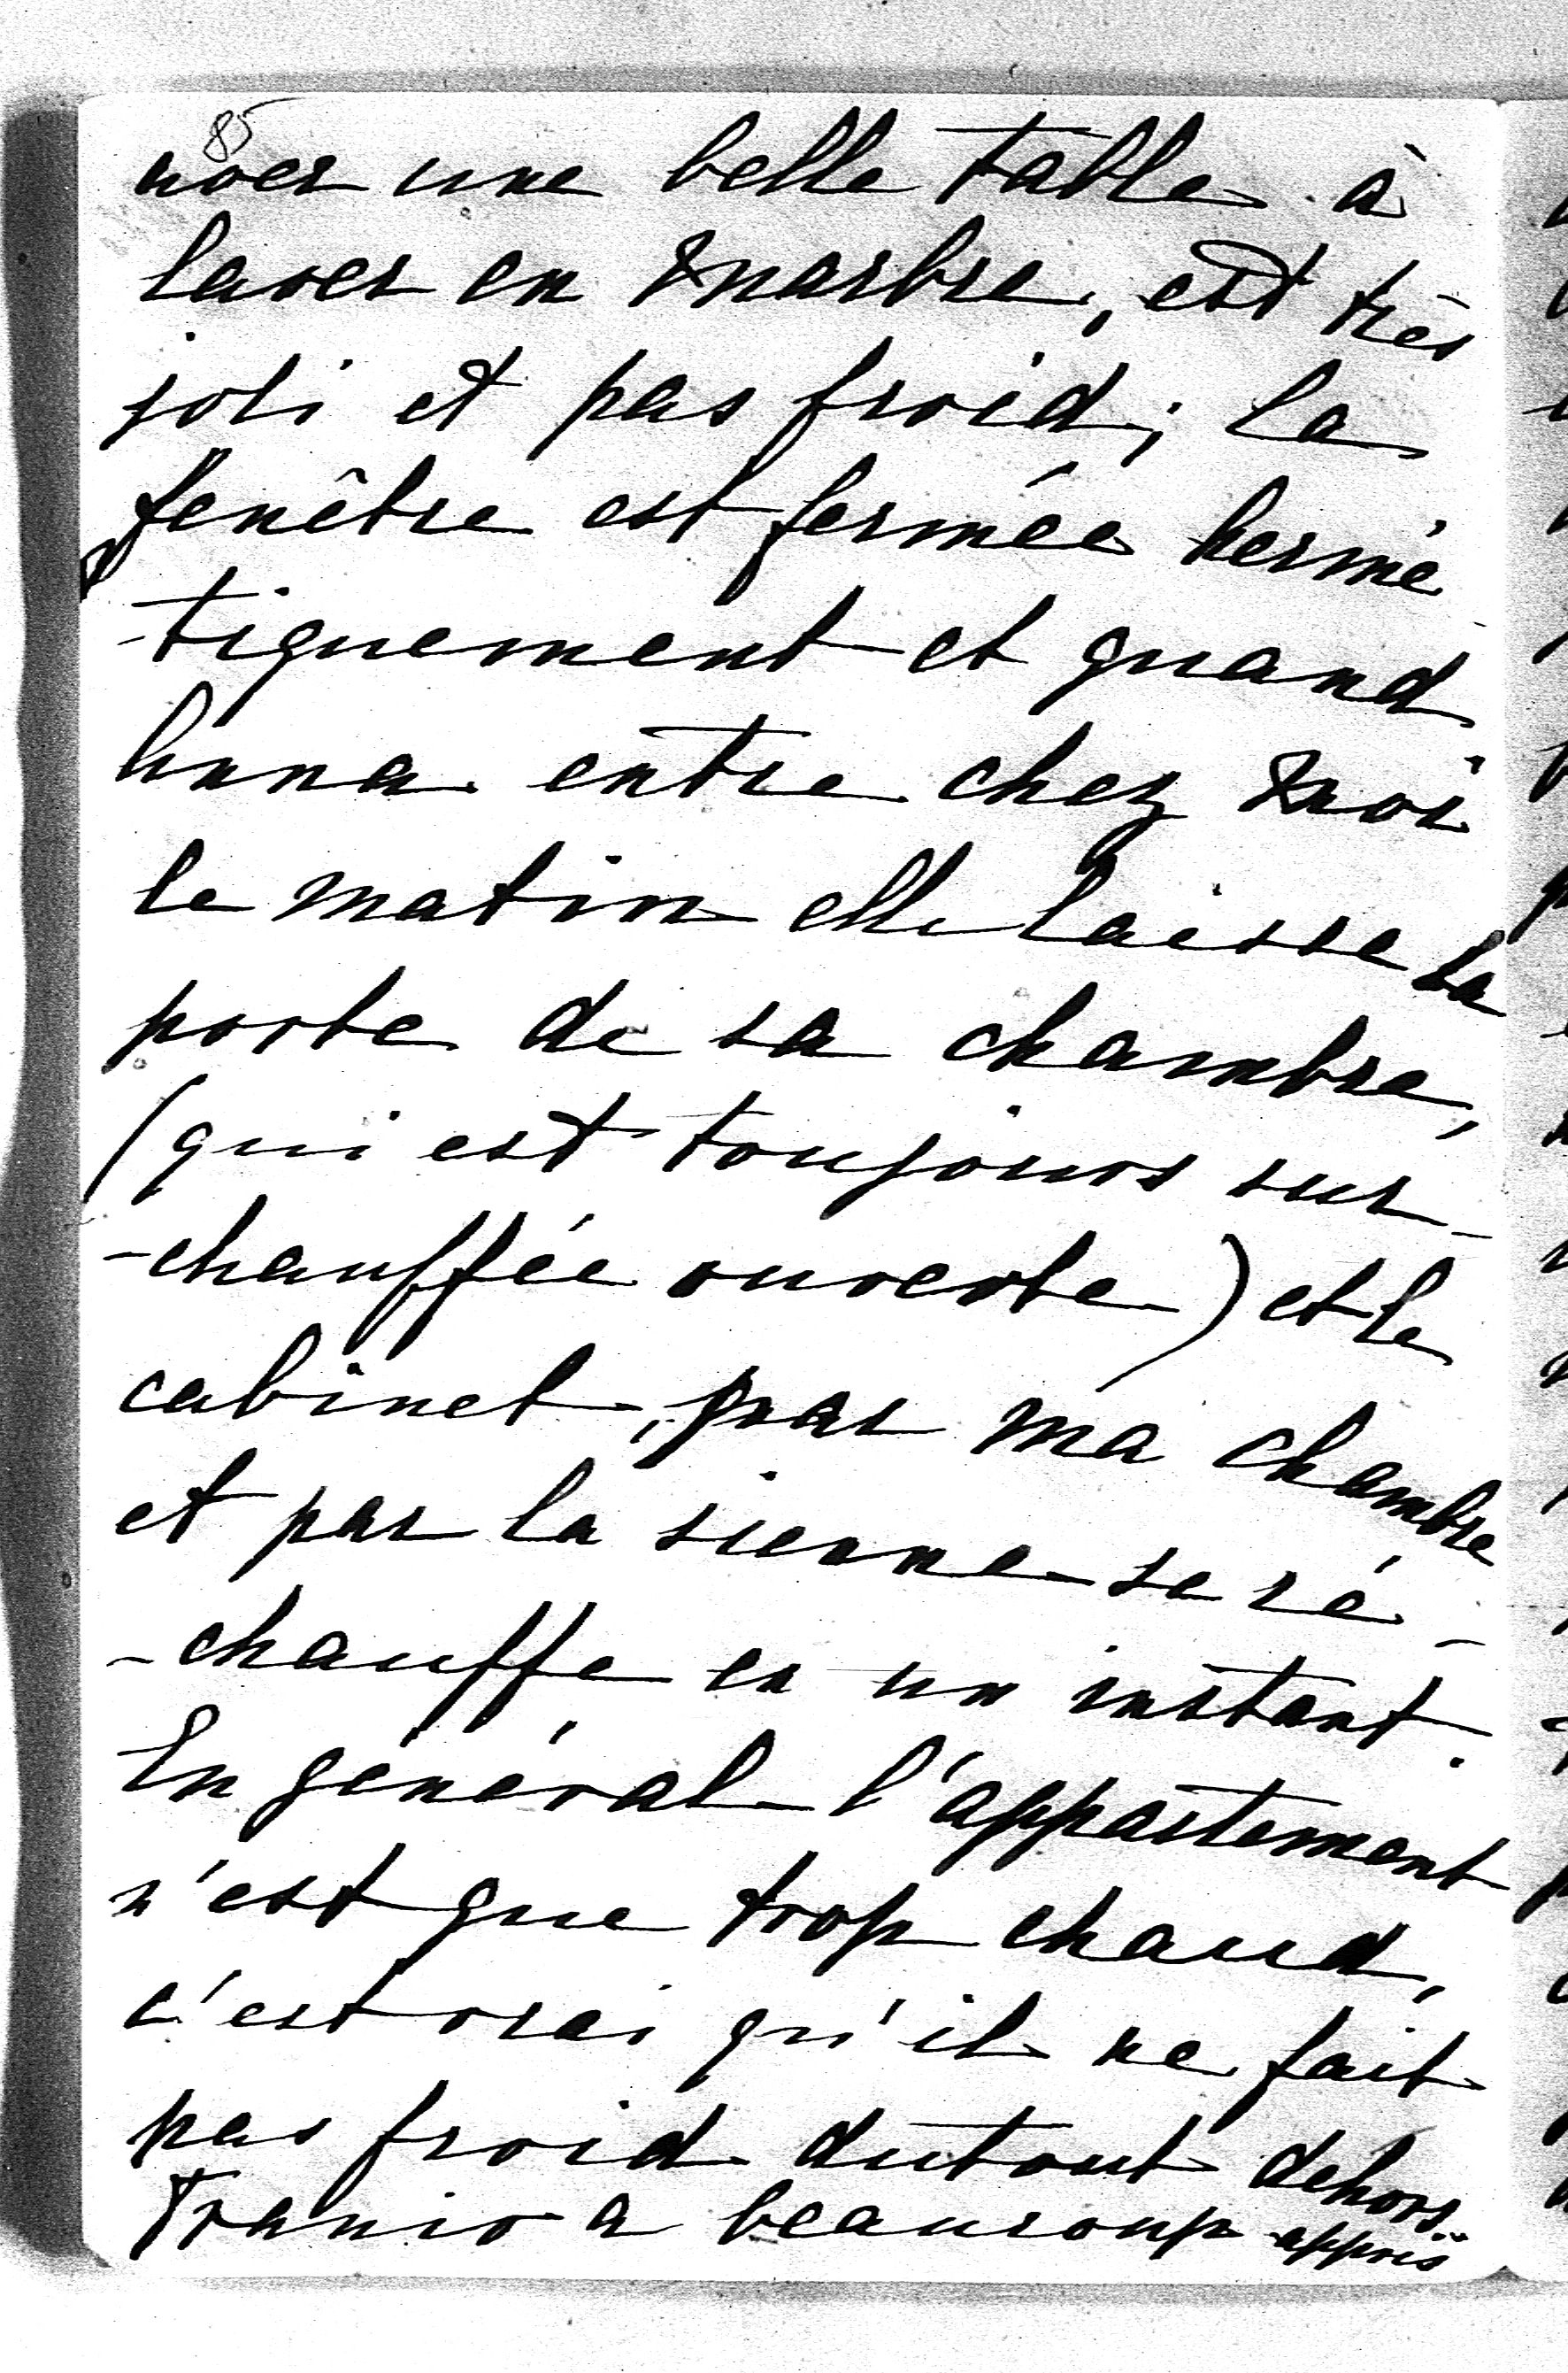 85
noer une belle table à
laver en marbre, est très
joli et pas froid; la
fenêtre est fermée hermé
-tiquement et quand
Anna entre chez moi
le matin elle laisse la
porte de sa chambre,
(qui est toujours sur-
-chauffée ouverte) et le
cabinet, par ma chambre
et par la sienne se ré-
-chauffe en un instant.
En général l'appartement
n'est que trop chaud,
c'est vrai qu'il ne fait
pas froid dutout dehors.
a beaucoup appris